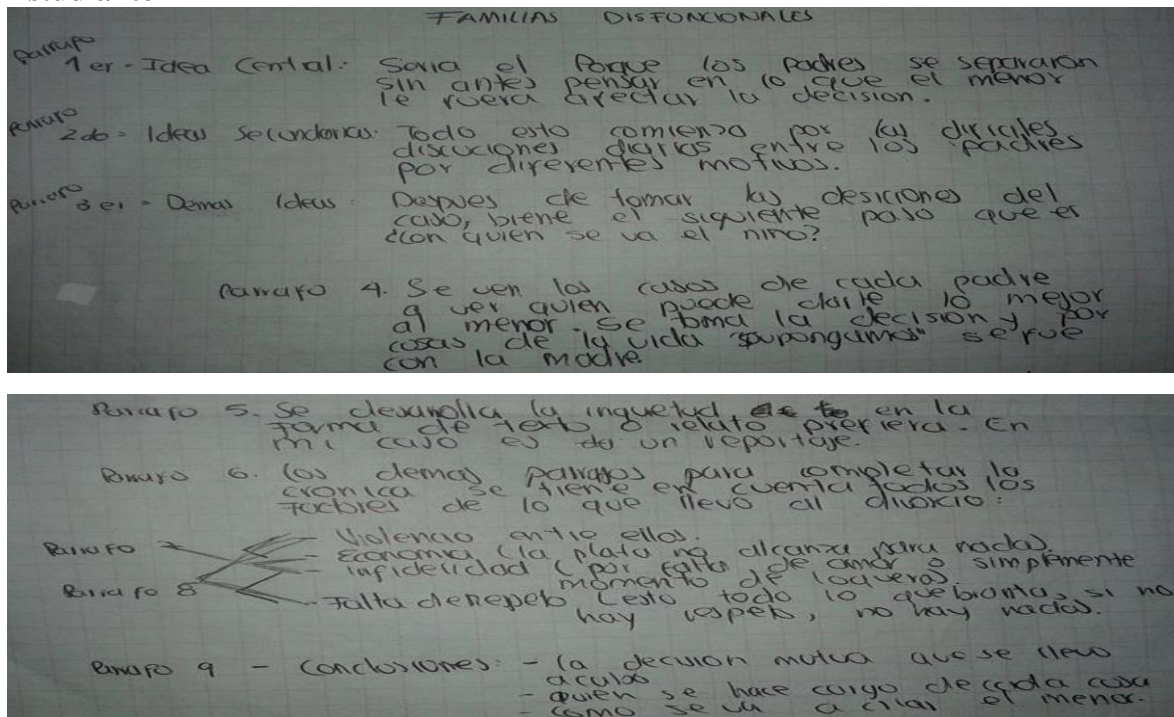 FAMILIAS DISFONCIONALES
Parrafo
1 er - Idea Central: Seria el Porque los padres se separaron
sin antes pensar en lo que el menor
le fuera afectar la decision.
Parrafo
2do = Ideas Secundarias. Todo esto comienza por las dificiles
discuciones diarias entre los padres
por diferentes motivos.
Parrafo
3 er = Demas Ideas. Despues de tomar las desiciones del
caso, biene el siguiente paso que es
¿con quien se va el niño?
Parrafo 4. Se ven los casos de cada padre
a ver quien puede darle lo mejor
al menor. Se toma la decisión y por
cosas de la vida "supongamos" se fue
con la madre
Parrafo 5. Se desarrolla la inquetud en la
forma de texto o relato prefiera. En
mi caso es de un reportaje.
Parrafo 6. los demas parrafos para completar la
cronica se tiene en cuenta todos los
factores de lo que llevó al divorcio:
- Violencia entre ellos.
Parrafo 7 - Economia (la plata no alcanza para nada).
- infidelidad (por falta de amor o simplemente
momento de loquera).
Parrafo 8 - Falta de respeto (esto todo lo quebranta, si no
hay respeto, no hay nada).
Parrafo 9 - Conclusiones: - la decision mutua que se llevo
acuerdo
- quien se hace cargo de cada cosa
- como se va a criar el menor.